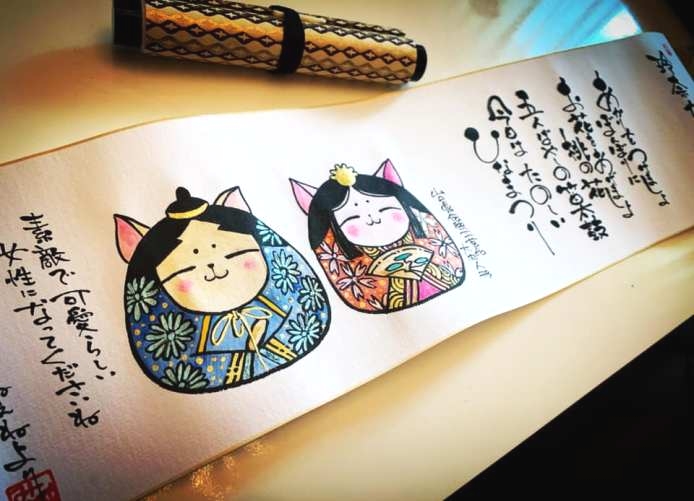 あかりをつけましょ
ぼんぼりに
お花をあげましょ
桃の花
五人ばやしの笛太鼓
今日はたのしい
ひなまつり
素敵で可愛らしい
女性になってくださいね